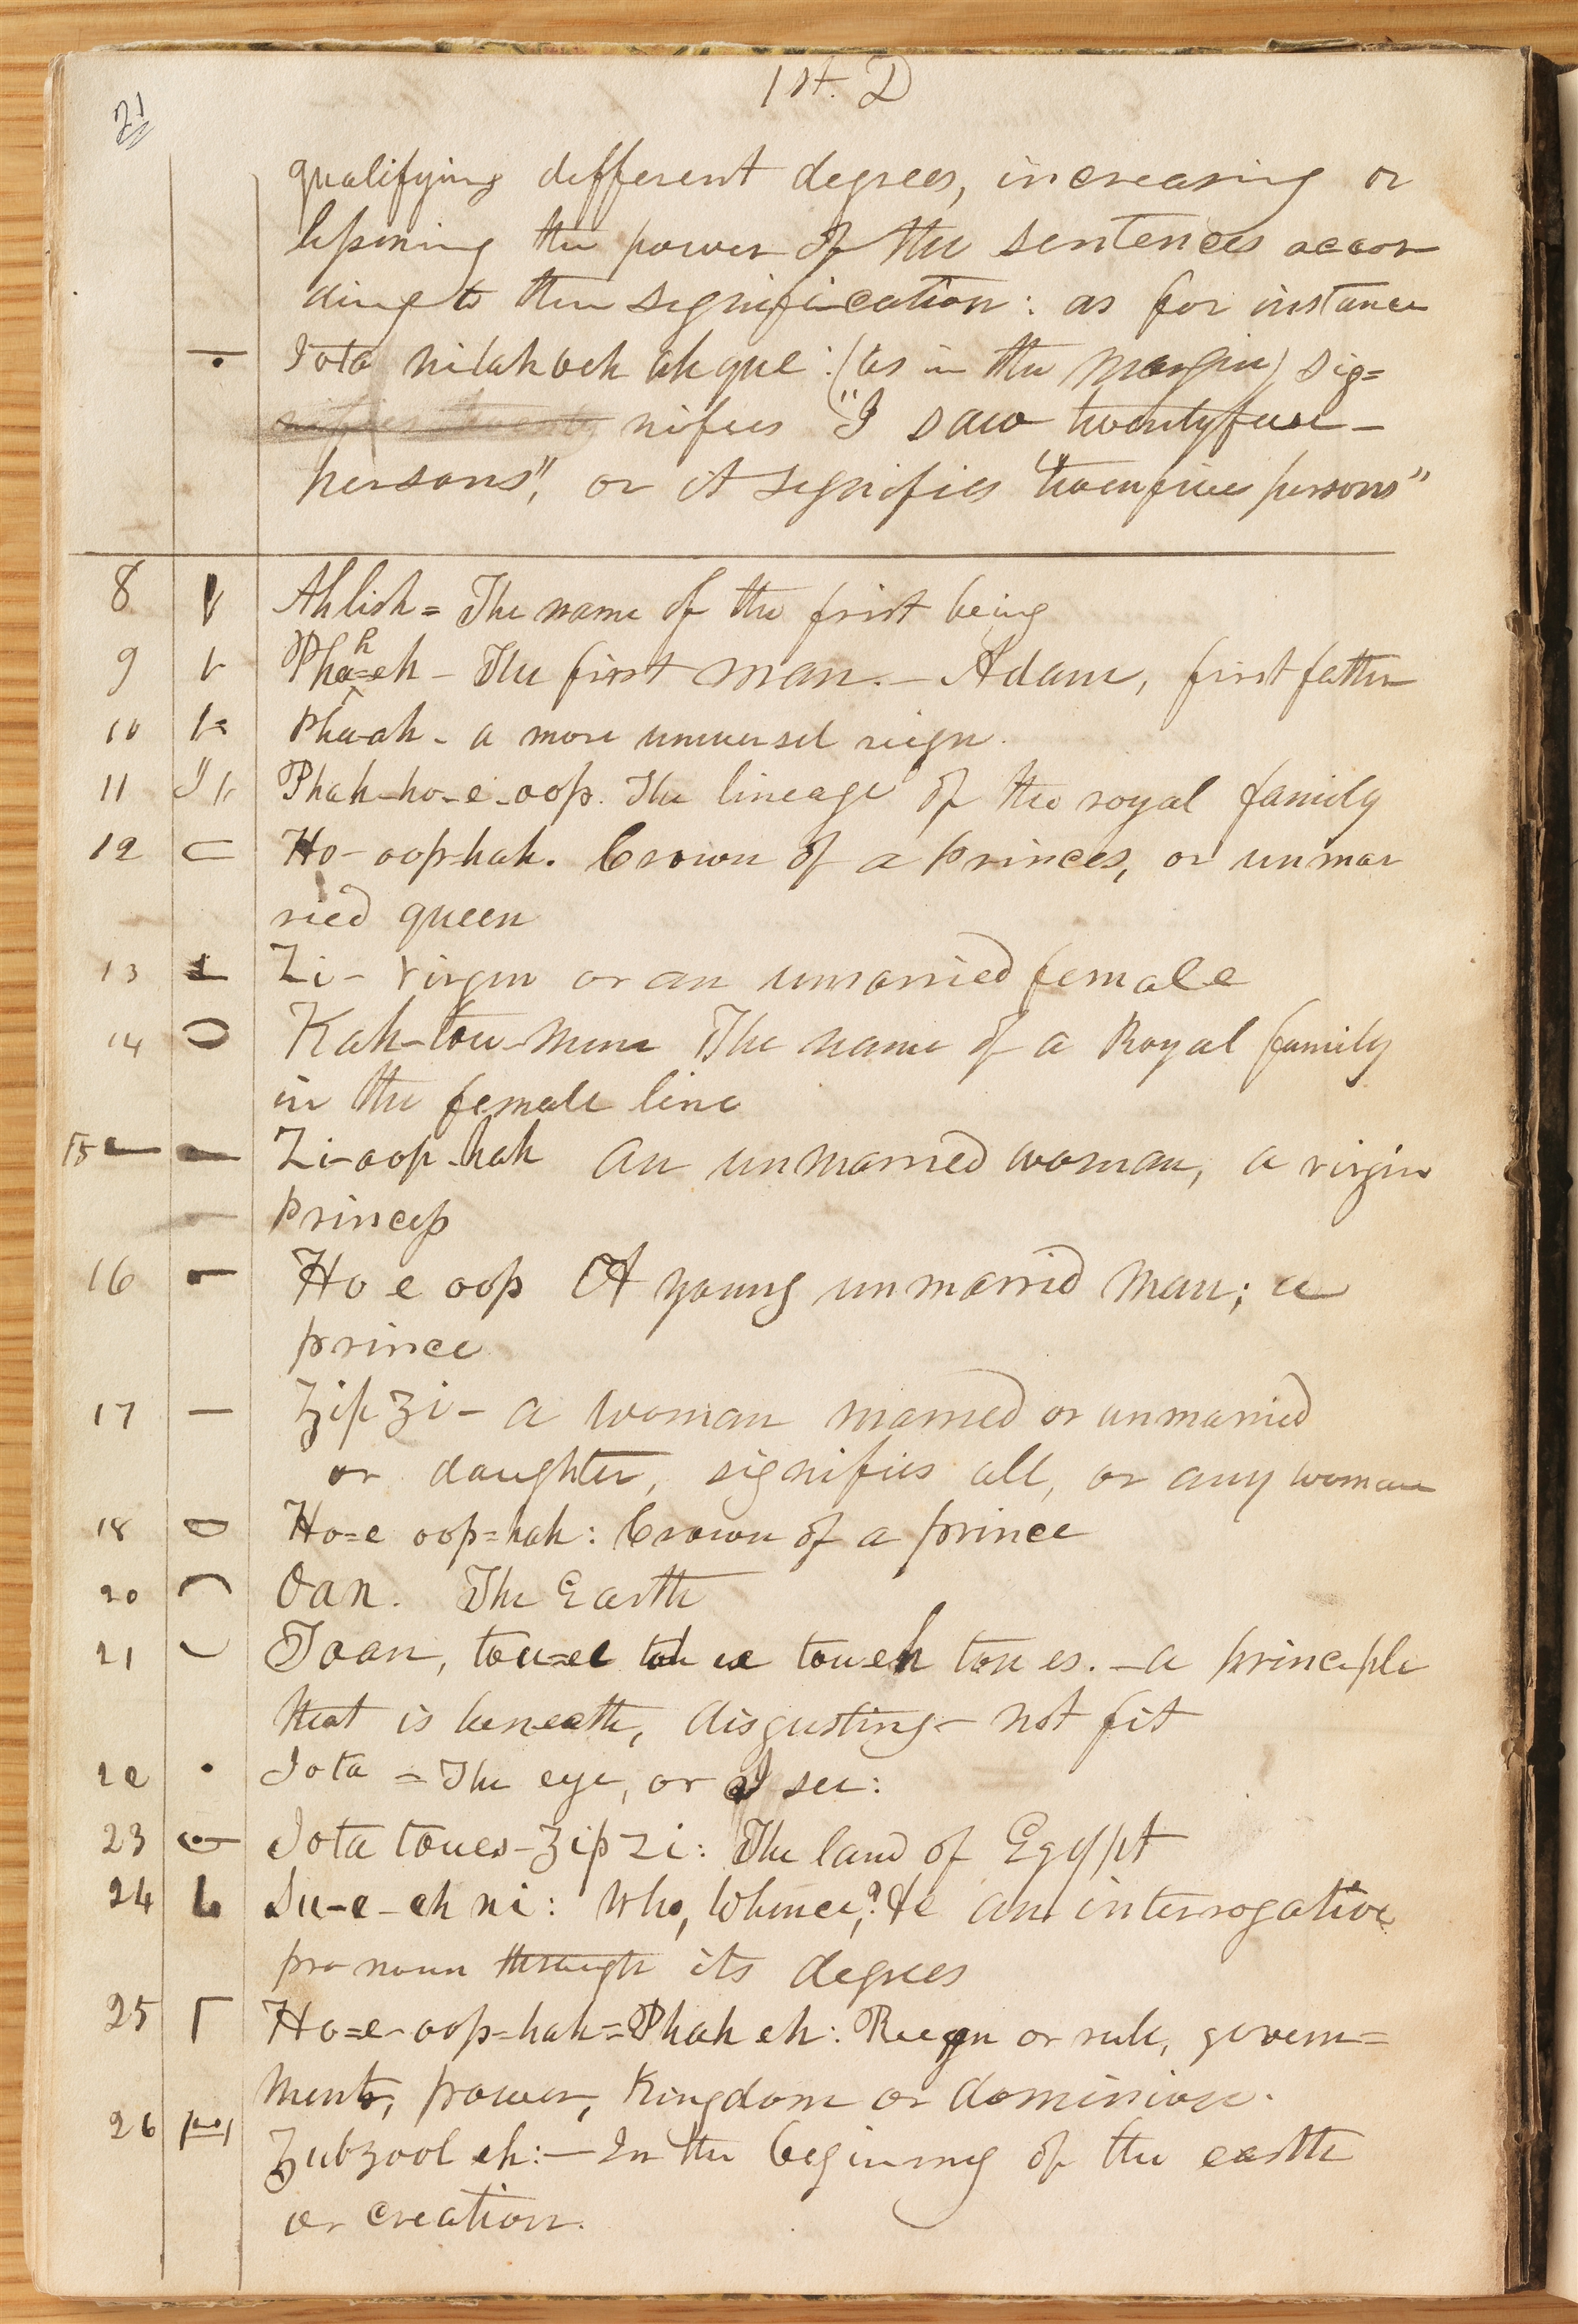 1st. D
21
qualifying different degrees, increasing or
lessening the power of the sentences accor
ding to their signification: as for instance
Iota nitahveh ah que: (as in the margin) sig=
nifies "I saw twenty five
persons", or it signifies "twenfive persons"
8 Ahlish = The name of the first being
9 Phah=eh – The first man. – Adam, first father
10 Pha-ah – a more universal reign.
11 Phah–ho–e–oop. The lineage of the royal family
12 Ho–oop=hah. Crown of a princes, or unmar
ried queen
13 Zi – virgin or an unmarried female
14 Kah–tou–mun The name of a Royal family
in the female line
15 Zi–oop–hah an unmarried woman, a virgin
princess
16 Ho e oop A young unmarried man; a
prince
17 Zip Zi – a woman married or unmarried
or daughter, signifies all, or any woman
18 Ho=e oop=hah: Crown of a prince
20 Oan. The Earth
21 Toan, tou=ee tou eh tou es. – a principle
that is beneath, disgusting – not fit
22 Iota = The eye, or I see:
23 Iota toues–Zip Zi: The land of Egypt
24 Su–e–eh ni: Who, Whence,? &c an interrogative
pronoun through its degrees
25 Ho=e–oop=hah=Phah eh: Reign or rule, govern=
ment, power, Kingdom or dominion.
26 Zubzool eh:– In the begining of the earth
or creation.